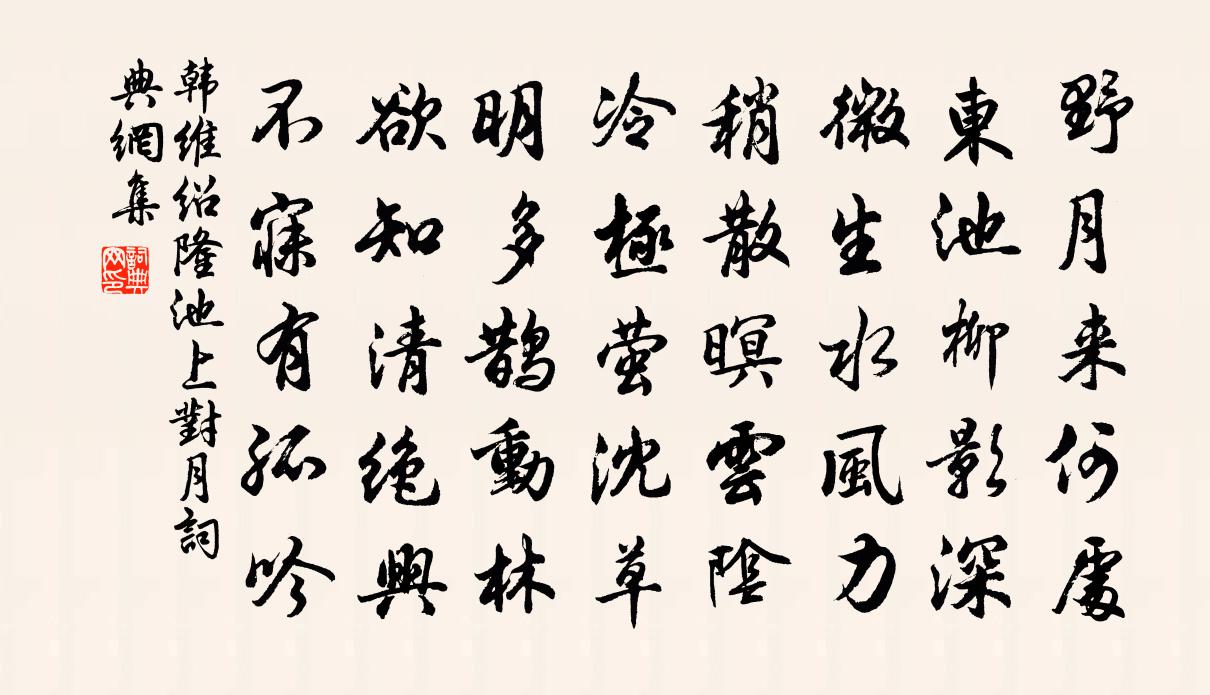 野月来何處
東池柳影深
微生水風力
稍散暝雲陰
冷極萤沈草
明多鵲動林
欲知清絶興
不寐有孤吟
韩維紹隆池上對月詞
典網集
詞典
网印